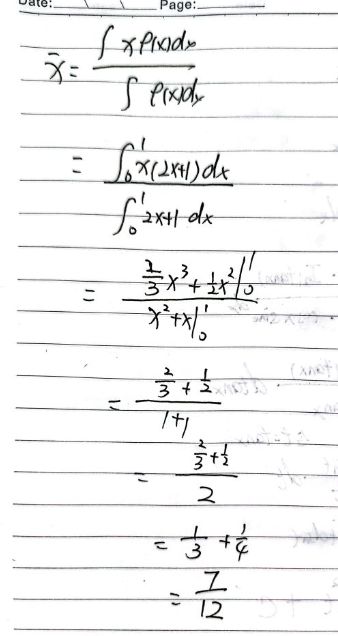 Date: Page:
x̄ = ∫ x ρ(x) dx / ∫ ρ(x) dx
= ∫₀¹ x(2x+1) dx / ∫₀¹ 2x+1 dx
= (2/3 x³ + 1/2 x² |₀¹) / (x² + x |₀¹)
= (2/3 + 1/2) / (1+1)
= (2/3 + 1/2) / 2
= 1/3 + 1/4
= 7/12